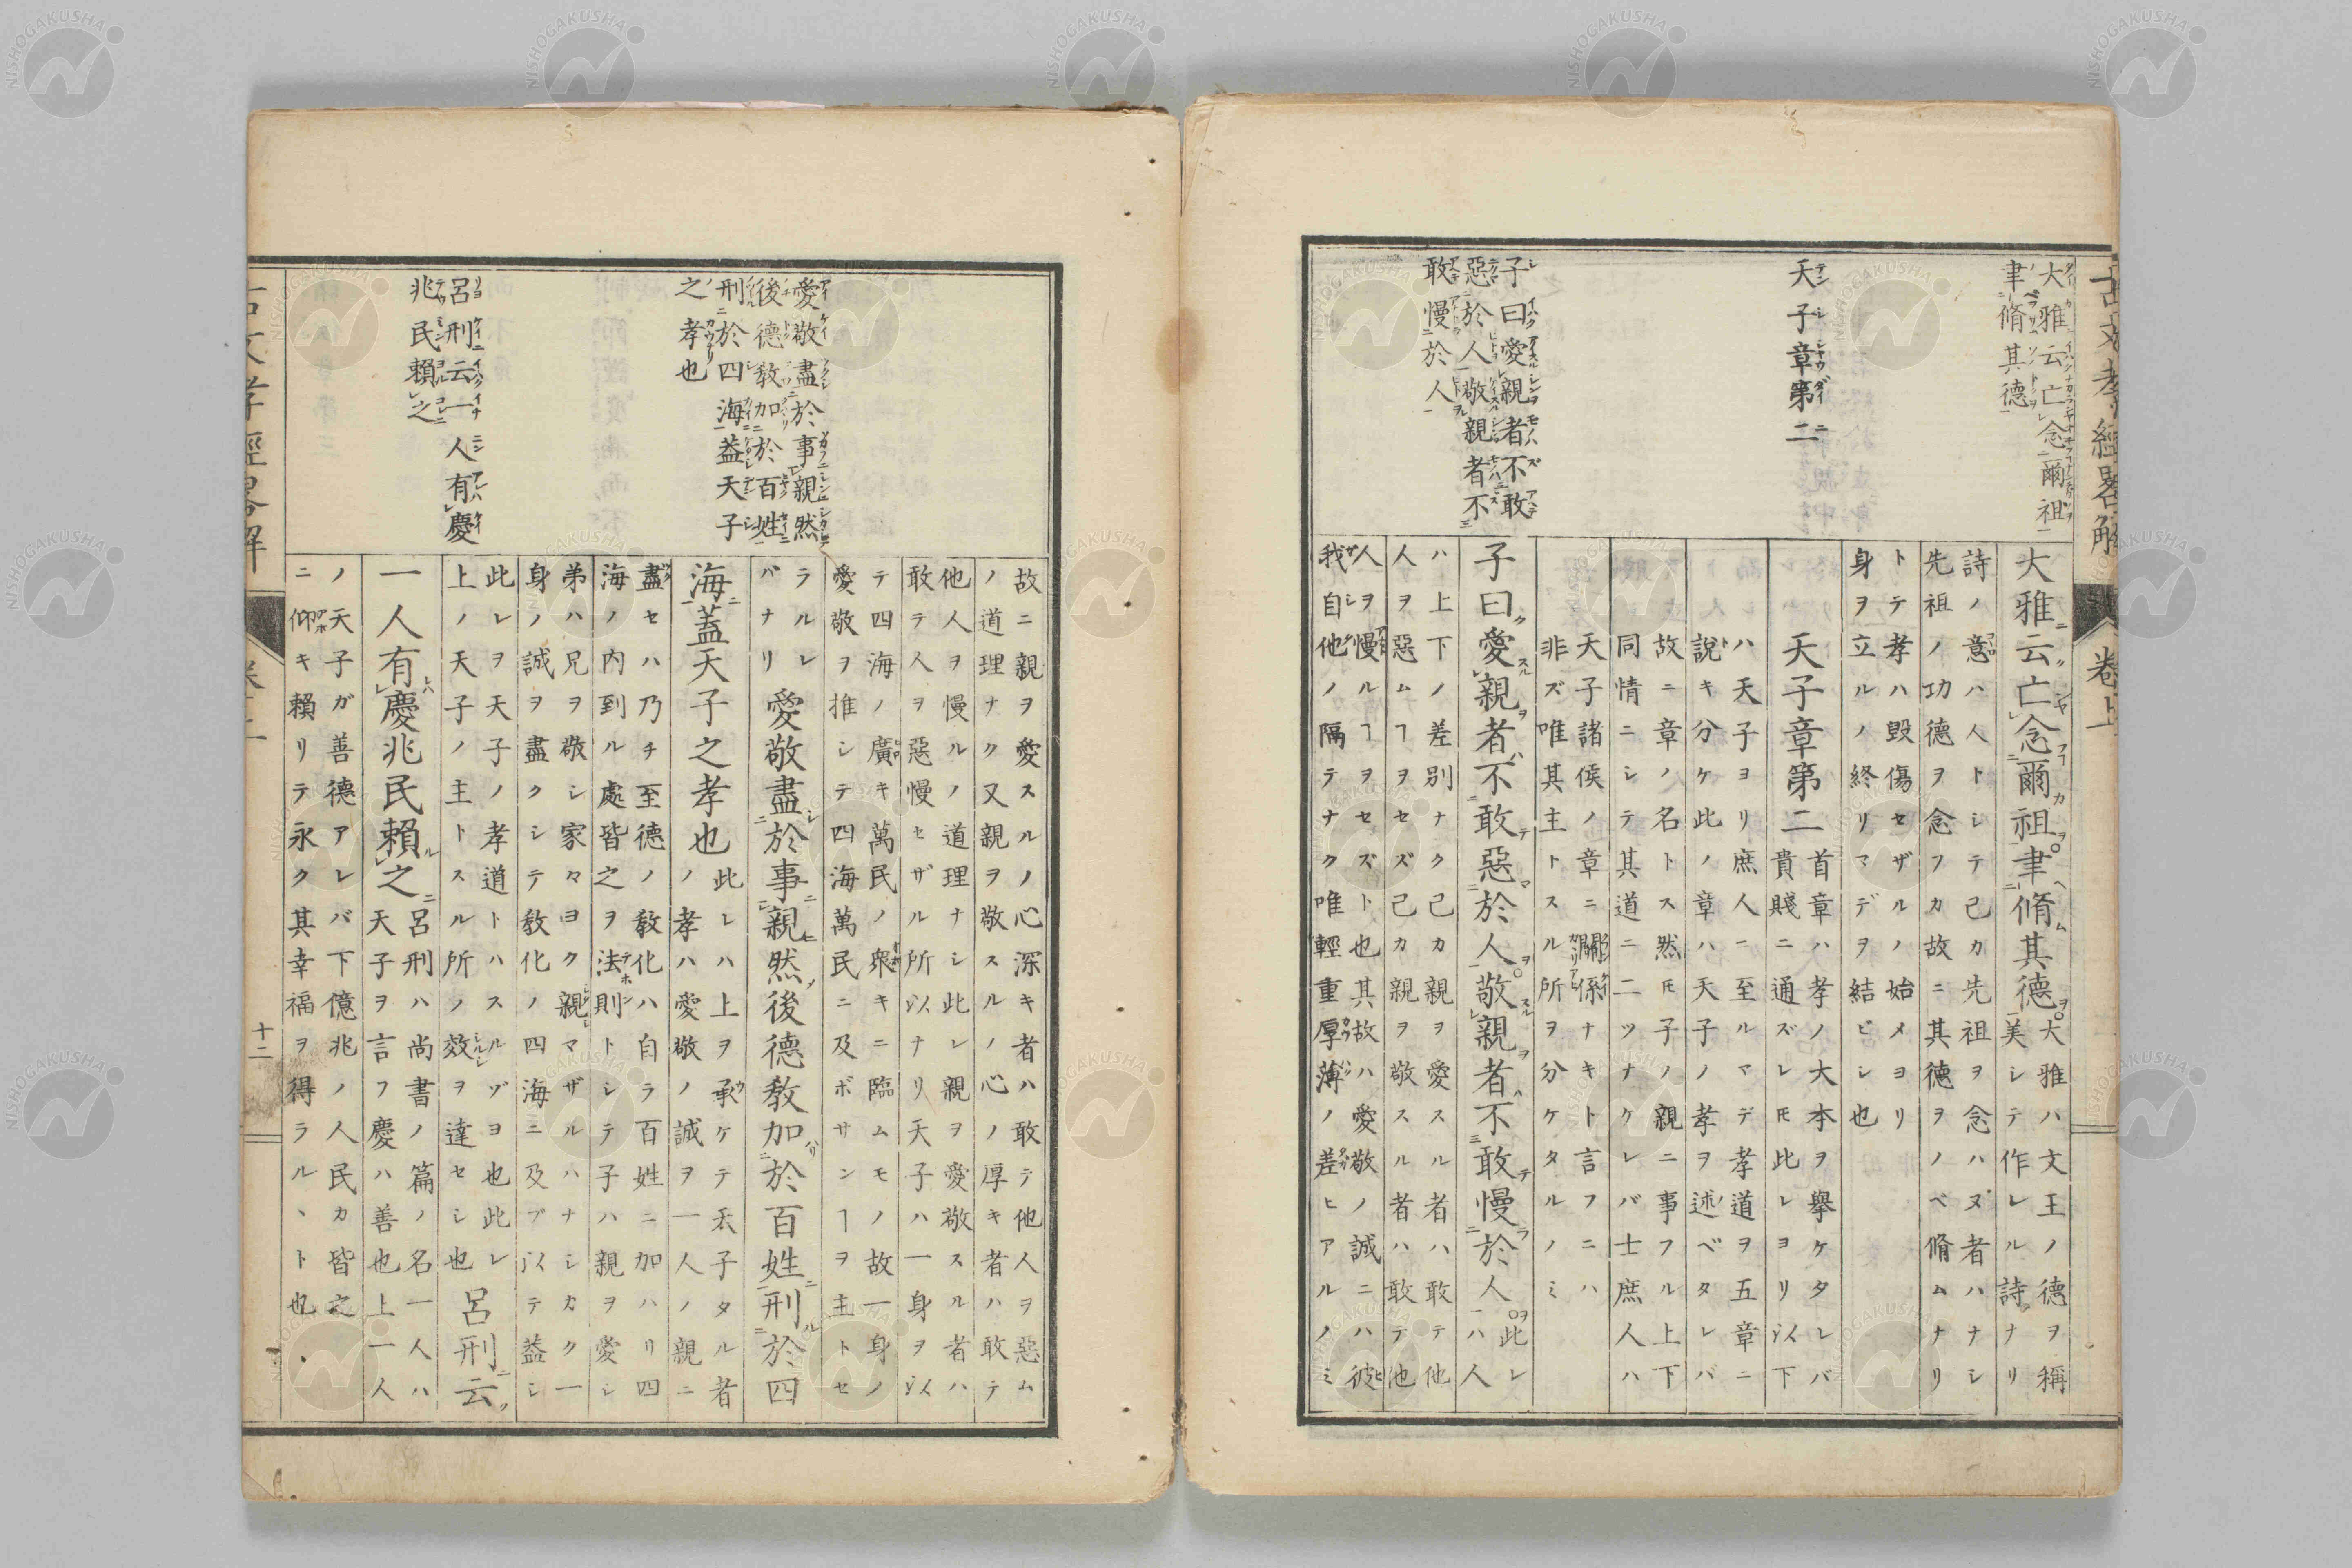 古文孝經畧解 卷上
大雅云亡念爾祖
聿脩其德
天子章第二
子曰愛親者不敢
惡於人敬親者不
敢慢於人
大雅云亡念爾祖聿脩其德
大雅ハ文王ノ德ヲ稱
美シテ作レル詩ナリ
詩ノ意ハ人トシテ己カ先祖ヲ念ハヌ者ハナシ
先祖ノ功德ヲ念フカ故ニ其德ヲノベ脩ムナリ
トテ孝ハ毀傷セザルノ始メヨリ
身ヲ立ルノ終リマデヲ結ビシ也
天子章第二
首章ハ孝ノ大本ヲ舉ケタレバ
貴賤ニ通ズレ𪜈此レヨリ以下
ハ天子ヨリ庶人ニ至ルマデ孝道ヲ五章ニ
說キ分ケ此ノ章ハ天子ノ孝ヲ述ベタレバ
故ニ章ノ名トス然𪜈子ノ親ニ事フル上下
同情ニシテ其道ニ二ツナケレバ士庶人ハ
天子諸侯ノ章ニ關係ナキト言フニハ
非ズ唯其主トスル所ヲ分ケタルノミ
子曰愛親者不敢惡於人敬親者不敢慢於人
此レ
ハ人
ハ上下ノ差別ナク己カ親ヲ愛スル者ハ敢テ他
人ヲ惡ムヿヲセズ己カ親ヲ敬スル者ハ敢テ他
人ヲ慢ルヿヲセズト也其故ハ愛敬ノ誠ニハ彼
我自他ノ隔テナク唯輕重厚薄ノ差ヒアルノミ
愛敬盡於事親然
後德教加於百姓
刑於四海蓋天子
之孝也
呂刑云一人有慶
兆民賴之
故ニ親ヲ愛スルノ心深キ者ハ敢テ他人ヲ惡ム
ノ道理ナク又親ヲ敬スルノ心ノ厚キ者ハ敢テ
他人ヲ慢ルノ道理ナシ此レ親ヲ愛敬スル者ハ
敢テ人ヲ惡慢セザル所以ナリ天子ハ一身ヲ以
テ四海ノ廣キ萬民ノ衆キニ臨ムモノ故一身ノ
愛敬ヲ推シテ四海萬民ニ及ボサンヿヲ主トセ
ラルレ
バナリ
愛敬盡於事親然後德教加於百姓刑於四
海蓋天子之孝也
此レハ上ヲ承ケテ天子タル者
ノ孝ハ愛敬ノ誠ヲ一人ノ親ニ
盡セハ乃チ至德ノ教化ハ自ラ百姓ニ加ハリ四
海ノ内到ル處皆之ヲ法則トシテ子ハ親ヲ愛シ
弟ハ兄ヲ敬シ家々ヨク親マザルハナシカク一
身ノ誠ヲ盡クシテ教化ノ四海ニ及ブ以テ蓋シ
此レヲ天子ノ孝道トハスルゾヨ也此レ
上ノ天子ノ主トスル所ノ效ヲ達セシ也
呂刑云
一人有慶兆民賴之
呂刑ハ尚書ノ篇ノ名一人ハ
天子ヲ言フ慶ハ善也上一人
ノ天子ガ善德アレバ下億兆ノ人民カ皆之
ニ仰キ賴リテ永ク其幸福ヲ得ラルヽト也
古文孝經畧解 卷上 十二
NISHOGAKUSHA